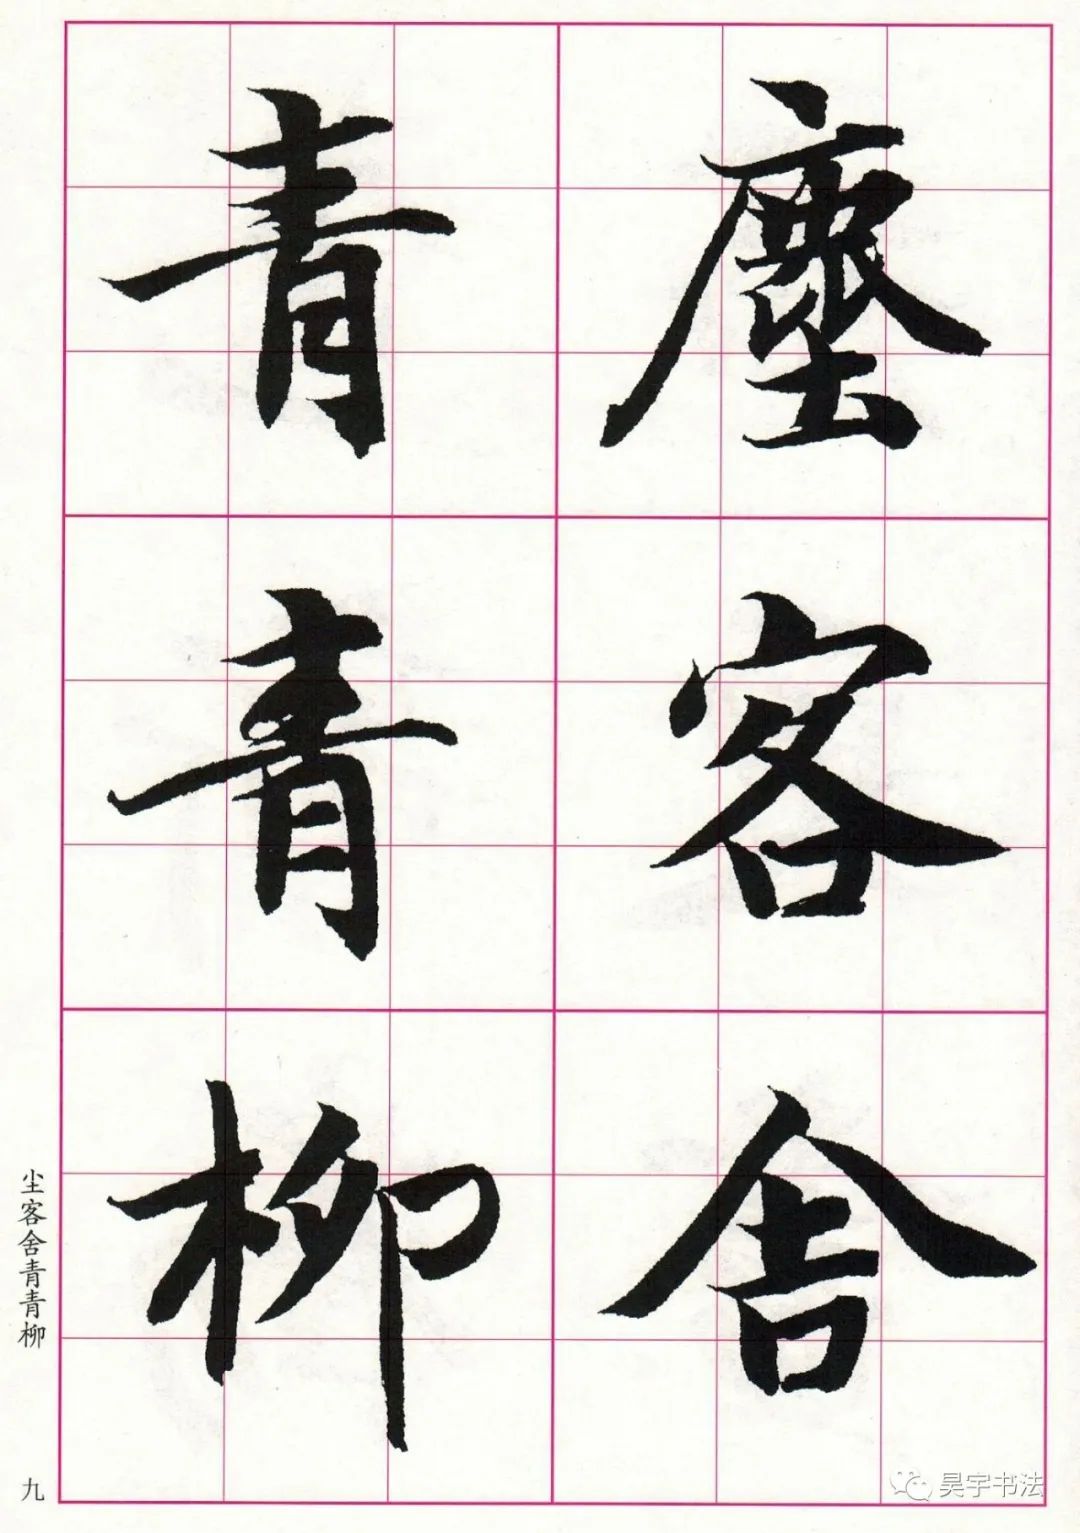 塵客舍
青青柳
尘客舍青青柳
九
昊宇书法